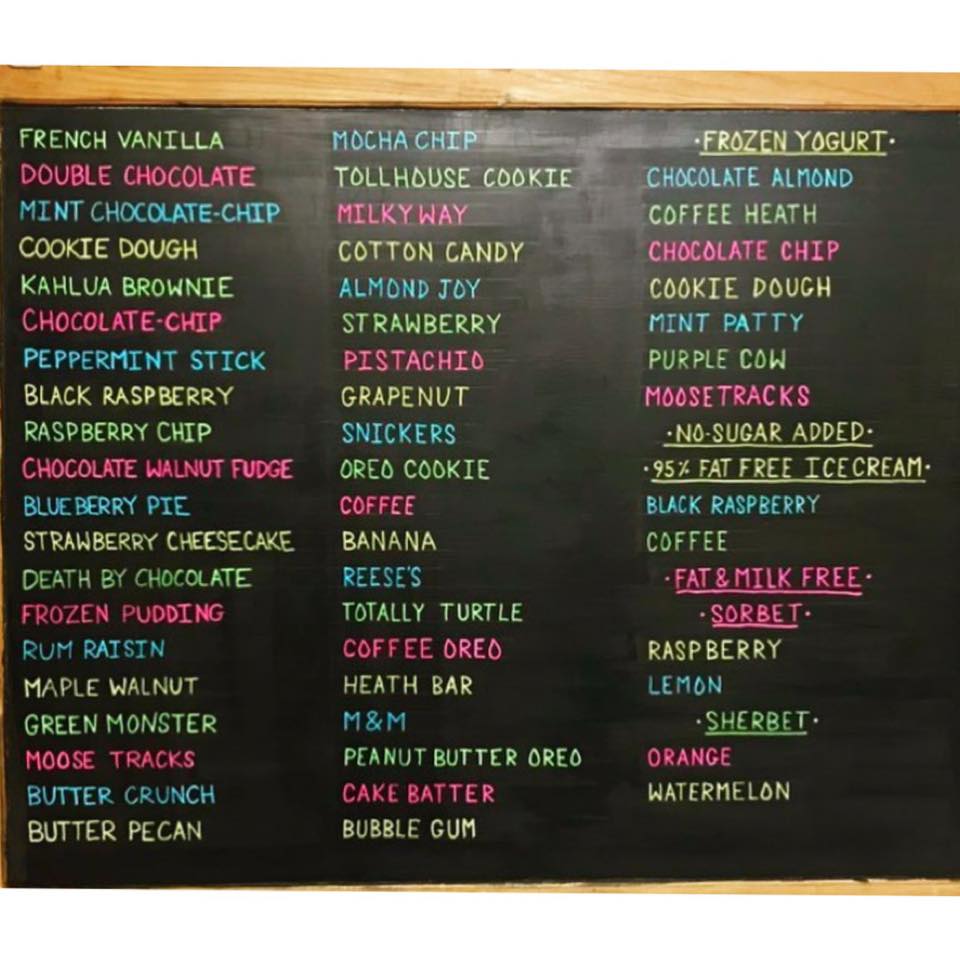 FRENCH VANILLA
DOUBLE CHOCOLATE
MINT CHOCOLATE-CHIP
COOKIE DOUGH
KAHLUA BROWNIE
CHOCOLATE-CHIP
PEPPERMINT STICK
BLACK RASPBERRY
RASPBERRY CHIP
CHOCOLATE WALNUT FUDGE
BLUEBERRY PIE
STRAWBERRY CHEESECAKE
DEATH BY CHOCOLATE
FROZEN PUDDING
RUM RAISIN
MAPLE WALNUT
GREEN MONSTER
MOOSE TRACKS
BUTTER CRUNCH
BUTTER PECAN
MOCHA CHIP
TOLLHOUSE COOKIE
MILKY WAY
COTTON CANDY
ALMOND JOY
STRAWBERRY
PISTACHIO
GRAPENUT
SNICKERS
OREO COOKIE
COFFEE
BANANA
REESE'S
TOTALLY TURTLE
COFFEE OREO
HEATH BAR
M&M
PEANUT BUTTER OREO
CAKE BATTER
BUBBLE GUM
·FROZEN YOGURT·
CHOCOLATE ALMOND
COFFEE HEATH
CHOCOLATE CHIP
COOKIE DOUGH
MINT PATTY
PURPLE COW
MOOSETRACKS
·NO-SUGAR ADDED·
·95% FAT FREE ICECREAM·
BLACK RASPBERRY
COFFEE
·FAT & MILK FREE·
·SORBET·
RASPBERRY
LEMON
·SHERBET·
ORANGE
WATERMELON